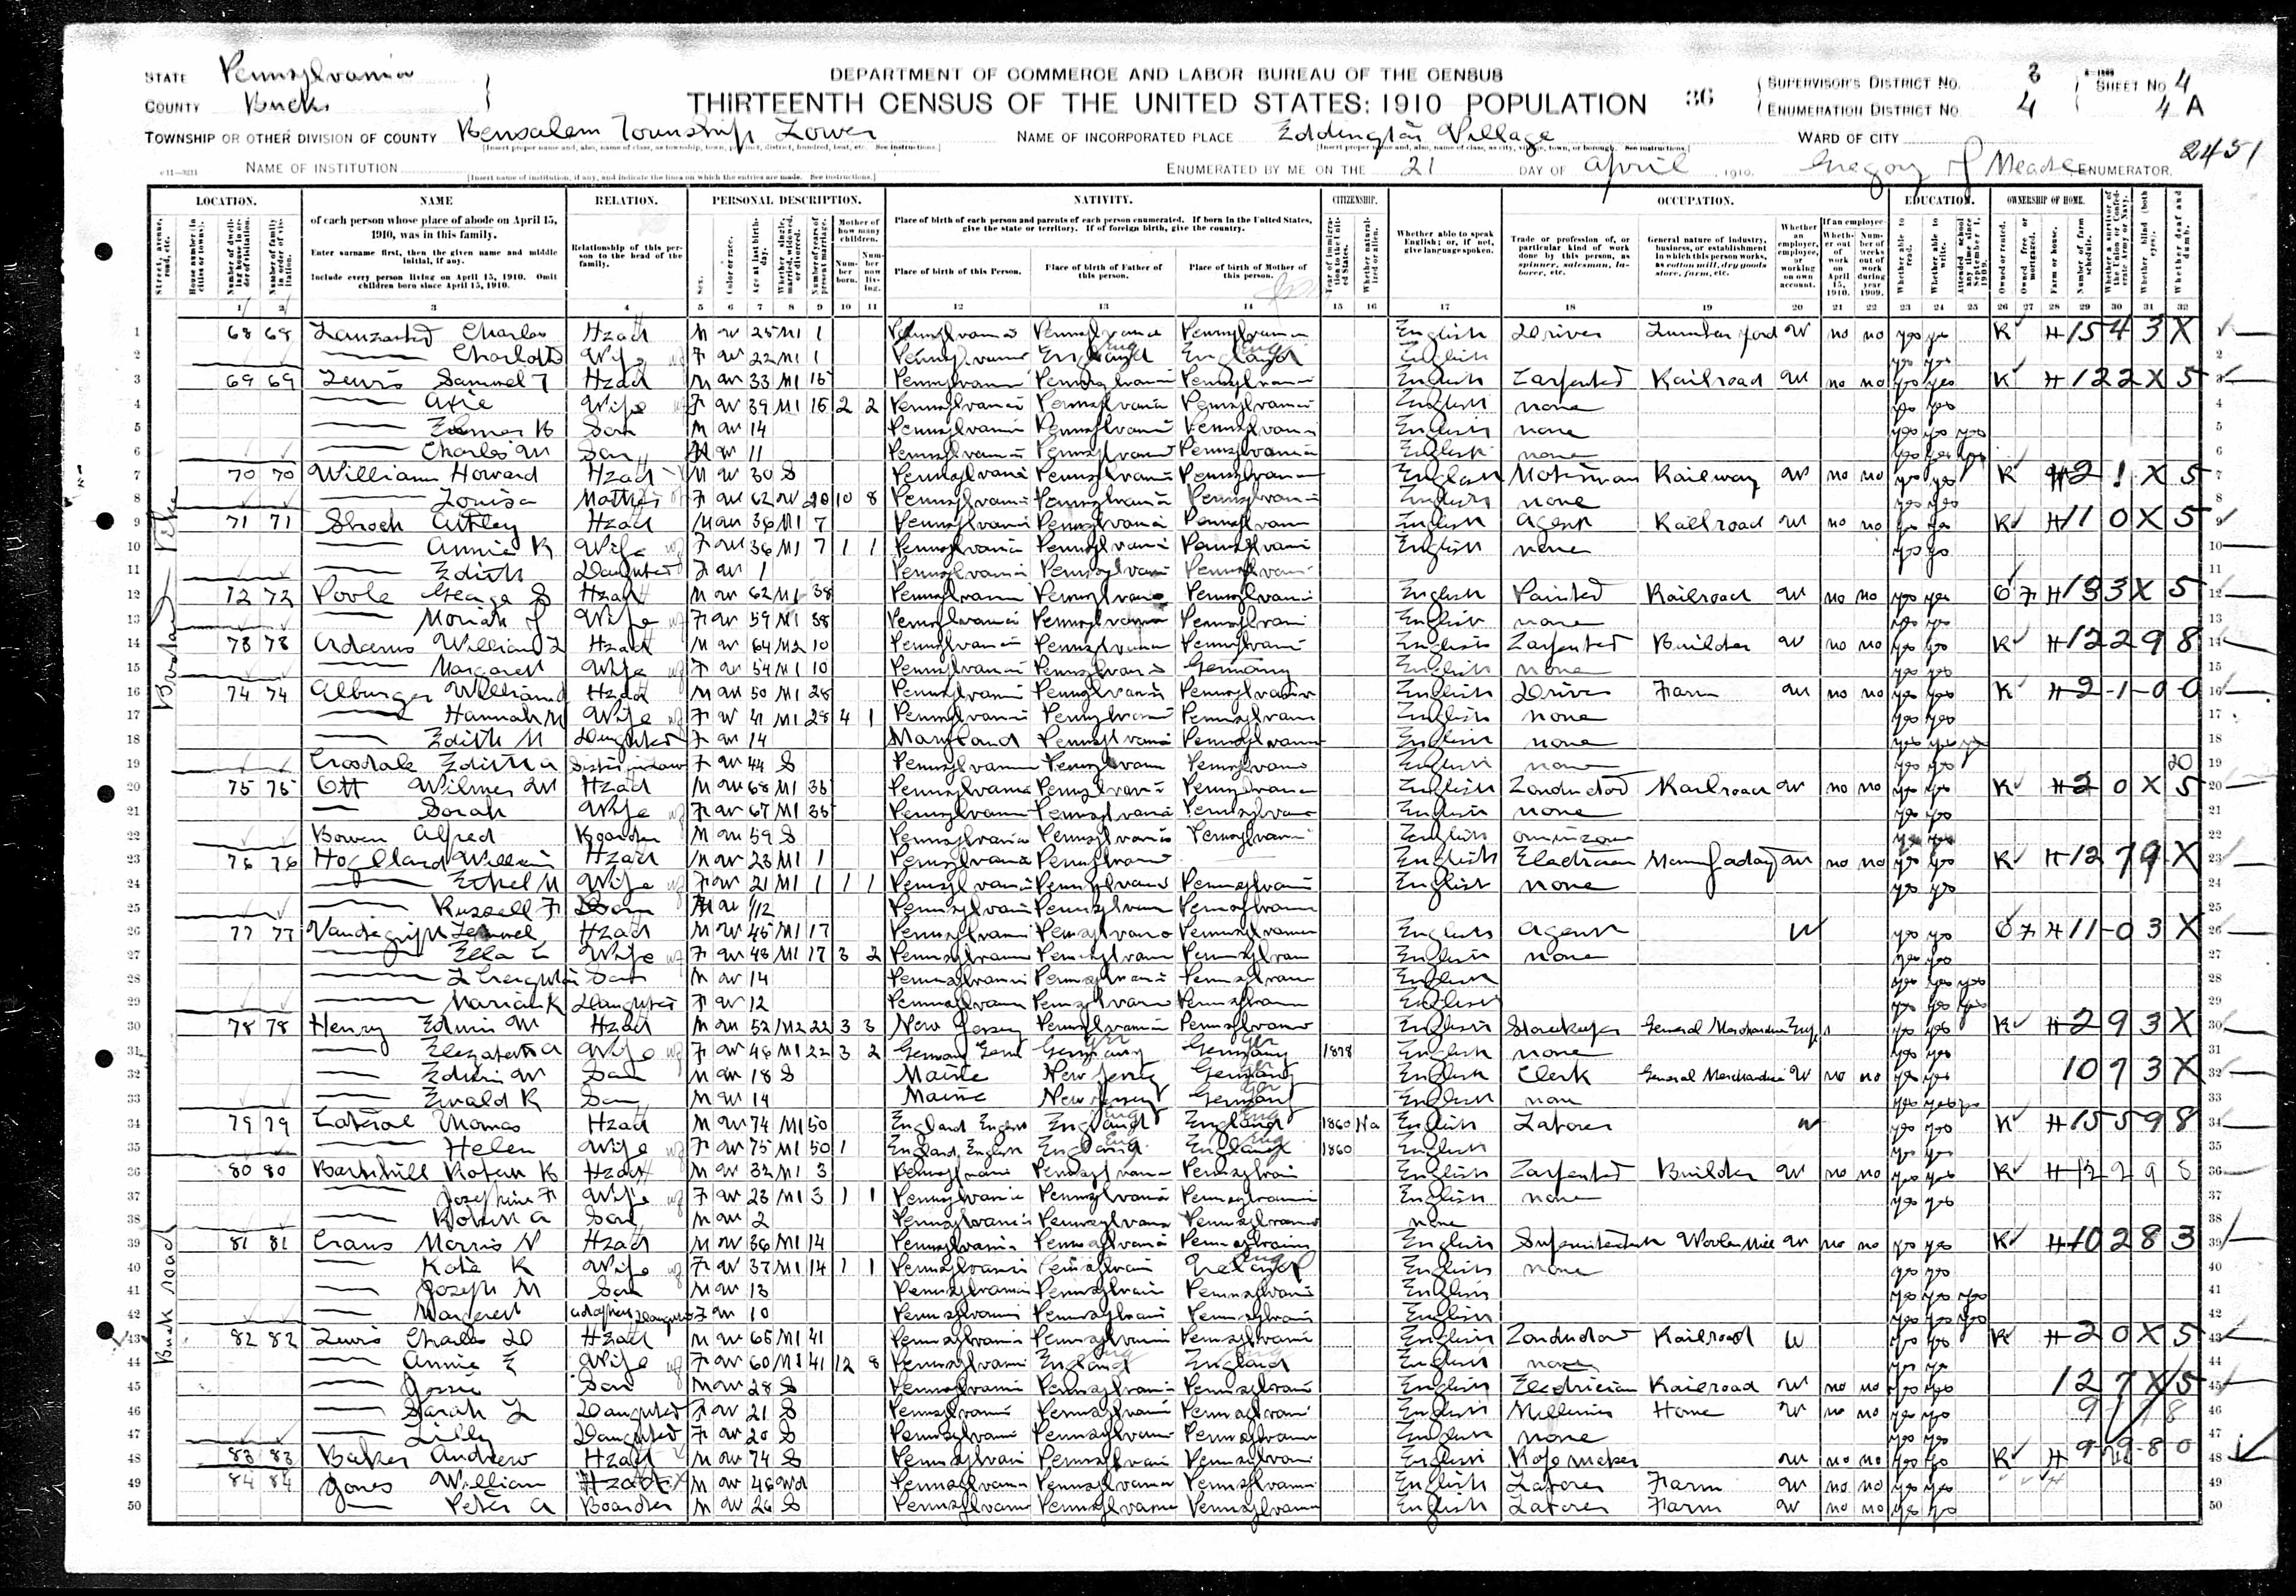 STATE Pennsylvania
COUNTY Bucks
DEPARTMENT OF COMMERCE AND LABOR BUREAU OF THE CENSUS
THIRTEENTH CENSUS OF THE UNITED STATES: 1910 POPULATION 36
SUPERVISOR'S DISTRICT NO. 3 SHEET NO. 4
ENUMERATION DISTRICT NO. 4 4 A
TOWNSHIP OR OTHER DIVISION OF COUNTY Bensalem Township Lower NAME OF INCORPORATED PLACE Eddington Village WARD OF CITY
NAME OF INSTITUTION ENUMERATED BY ME ON THE 21 DAY OF April, 1910. Gregory J Meade ENUMERATOR. 2451
LOCATION. NAME RELATION. PERSONAL DESCRIPTION. NATIVITY. CITIZENSHIP. OCCUPATION. EDUCATION. OWNERSHIP OF HOME.
of each person whose place of abode on April 15, 1910, was in this family.
Enter surname first, then the given name and middle initial, if any.
Include every person living on April 15, 1910. Omit children born since April 15, 1910.
Relationship of this person to the head of the family.
Place of birth of each person and parents of each person enumerated. If born in the United States, give the state or territory. If of foreign birth, give the country.
Place of birth of this Person. Place of birth of Father of this person. Place of birth of Mother of this person.
Whether able to speak English; or, if not, give language spoken.
Trade or profession of, or particular kind of work done by this person, as spinner, salesman, laborer, etc.
General nature of industry, business, or establishment in which this person works, as cotton mill, dry goods store, farm, etc.
1 2 3 4 5 6 7 8 9 10 11 12 13 14 15 16 17 18 19 20 21 22 23 24 25 26 27 28 29 30 31 32
1 68 68 Charles Head M W 25 M1 1 Pennsylvania Pennsylvania Pennsylvania English Driver Lumber yard W no no yes yes R H 1543X
2 Charlotte Wife F W 22 M1 1 Pennsylvania England England English yes yes
3 69 69 Lewis Samuel T Head M W 33 M1 15 Pennsylvania Pennsylvania Pennsylvania English Carpenter Railroad W no no yes yes R H 122X5
4 Wife F W 39 M1 15 2 2 Pennsylvania Pennsylvania Pennsylvania English none yes yes
5 Son M W 14 Pennsylvania Pennsylvania Pennsylvania English none yes yes yes
6 Charles W Son M W 11 Pennsylvania Pennsylvania Pennsylvania English none yes yes yes
7 70 70 William Howard Head M W 30 S Pennsylvania Pennsylvania Pennsylvania English Motorman Railway W no no yes yes R H 21X5
8 Louisa Mother F W 62 W 10 8 Pennsylvania Pennsylvania Pennsylvania English none yes yes
9 71 71 Head M W 36 M1 7 Pennsylvania Pennsylvania Pennsylvania English Agent Railroad W no no yes yes R H 110X5
10 Annie K Wife F W 36 M1 7 1 1 Pennsylvania Pennsylvania Pennsylvania English none yes yes
11 Edith Daughter F W 1 Pennsylvania Pennsylvania Pennsylvania
12 72 72 Poole George S Head M W 62 M1 38 Pennsylvania Pennsylvania Pennsylvania English Painter Railroad W no no yes yes O F H 133X5
13 Moriah J Wife F W 59 M1 38 Pennsylvania Pennsylvania Pennsylvania English none yes yes
14 73 73 Adams William L Head M W 64 M2 10 Pennsylvania Pennsylvania Pennsylvania English Carpenter Builder W no no yes yes R H 12298
15 Margaret Wife F W 54 M1 10 Pennsylvania Pennsylvania Germany English none yes yes
16 74 74 Alburger William Head M W 50 M1 28 Pennsylvania Pennsylvania Pennsylvania English Driver Farm W no no yes yes R H 2-1-00
17 Hannah M Wife F W 41 M1 28 4 1 Pennsylvania Pennsylvania Pennsylvania English none yes yes
18 Edith M Daughter F W 14 Maryland Pennsylvania Pennsylvania English none yes yes yes
19 Crosdale Edith A Sister in law F W 44 S Pennsylvania Pennsylvania Pennsylvania English none yes yes
20 75 75 Ott Wilmer W Head M W 68 M1 35 Pennsylvania Pennsylvania Pennsylvania English Conductor Railroad W no no yes yes R H 20X5
21 Sarah Wife F W 67 M1 35 Pennsylvania Pennsylvania Pennsylvania English none yes yes
22 Bowen Alfred Boarder M W 59 S Pennsylvania Pennsylvania Pennsylvania English own income yes yes
23 76 76 Holland William Head M W 23 M1 1 Pennsylvania Pennsylvania English W no no yes yes R H 1279X
24 Ethel M Wife F W 21 M1 1 1 1 Pennsylvania Pennsylvania Pennsylvania English none yes yes
25 Russell F Son M W Pennsylvania Pennsylvania Pennsylvania
26 77 77 Vandegrift Lemuel Head M W 45 M1 17 Pennsylvania Pennsylvania Pennsylvania English Agent W yes yes O F H 11-03X
27 Ella L Wife F W 48 M1 17 3 2 Pennsylvania Pennsylvania Pennsylvania English none yes yes
28 L Creighton Son M W 14 Pennsylvania Pennsylvania Pennsylvania English yes yes yes
29 Marian K Daughter F W 12 Pennsylvania Pennsylvania Pennsylvania English yes yes yes
30 78 78 Henry Edwin W Head M W 52 M2 22 3 3 New Jersey Pennsylvania Pennsylvania English Storekeeper General Merchandise Emp yes yes R H 293X
31 Elizabeth A Wife F W 46 M1 22 3 2 Germany Germ Germany Germany 1878 English none yes yes
32 Edwin W Son M W 18 S Maine New Jersey Germany English Clerk General Merchandise W no no yes yes 1093X
33 Ewald R Son M W 14 Maine New Jersey Germany English none yes yes yes
34 79 79 Thomas Head M W 74 M1 50 England English England England 1860 Na English Laborer W yes yes R H 15598
35 Helen Wife F W 75 M1 50 1 England English England England 1860 English yes yes
36 80 80 Barnhill Robert K Head M W 32 M1 3 Pennsylvania Pennsylvania Pennsylvania English Carpenter Builder W no no yes yes R H 12298
37 Josephine F Wife F W 23 M1 3 1 1 Pennsylvania Pennsylvania Pennsylvania English none yes yes
38 Robert A Son M W 2 Pennsylvania Pennsylvania Pennsylvania none
39 81 81 Crans Morris N Head M W 36 M1 14 Pennsylvania Pennsylvania Pennsylvania English Superintendent Woolen Mill W no no yes yes R H 10283
40 Kate K Wife F W 37 M1 14 1 1 Pennsylvania Pennsylvania Ireland English none yes yes
41 Joseph M Son M W 13 Pennsylvania Pennsylvania Pennsylvania English yes yes yes
42 Margaret adopted Daughter F W 10 Pennsylvania Pennsylvania Pennsylvania English yes yes yes
43 82 82 Lewis Charles D Head M W 65 M1 41 Pennsylvania Pennsylvania Pennsylvania English Conductor Railroad W yes yes R H 20X5
44 Annie E Wife F W 60 M1 41 12 8 Pennsylvania England England English none yes yes
45 Jessie Son M W 28 S Pennsylvania Pennsylvania Pennsylvania English Electrician Railroad W no no yes yes 127X5
46 Sarah L Daughter F W 21 S Pennsylvania Pennsylvania Pennsylvania English Home W no no yes yes
47 Lilly Daughter F W 20 S Pennsylvania Pennsylvania Pennsylvania English none yes yes
48 83 83 Baker Andrew Head M W 74 S Pennsylvania Pennsylvania Pennsylvania English W no no yes yes R H
49 84 84 Jones William Head M W 46 Wd Pennsylvania Pennsylvania Pennsylvania English Laborer Farm W no no yes yes
50 Peter A Boarder M W 26 S Pennsylvania Pennsylvania Pennsylvania English Laborer Farm W no no yes yes
Bristol Pike
Buck road